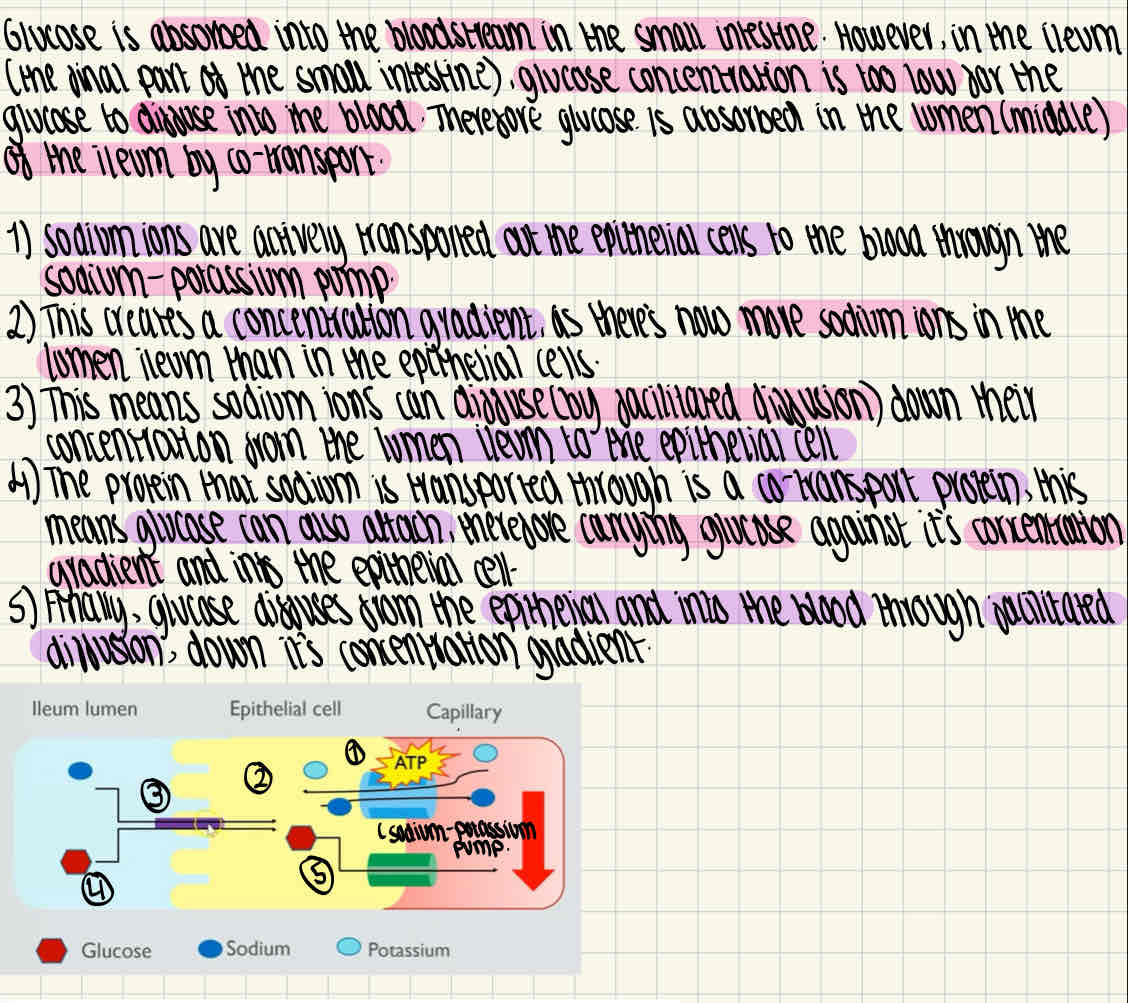 Glucose is absorbed into the bloodstream in the small intestine. However, in the ileum
(the final part of the small intestine), glucose concentration is too low for the
glucose to diffuse into the blood. Therefore glucose is absorbed in the lumen (middle)
of the ileum by co-transport.
1) Sodium ions are actively transported out the epithelial cells to the blood through the
sodium-potassium pump.
2) This creates a concentration gradient, as there's now more sodium ions in the
lumen ileum than in the epithelial cells.
3) This means sodium ions can diffuse (by facilitated diffusion) down their
concentration from the lumen ileum to the epithelial cell
4) The protein that sodium is transported through is a co-transport protein, this
means glucose can also attach, therefore carrying glucose against it's concentration
gradient and into the epithelial cell.
5) Finally, glucose diffuses from the epithelial and into the blood through facilitated
diffusion, down it's concentration gradient.
Ileum lumen Epithelial cell Capillary
① ATP
② ③
(sodium-potassium
pump.
④ ⑤
Glucose Sodium Potassium